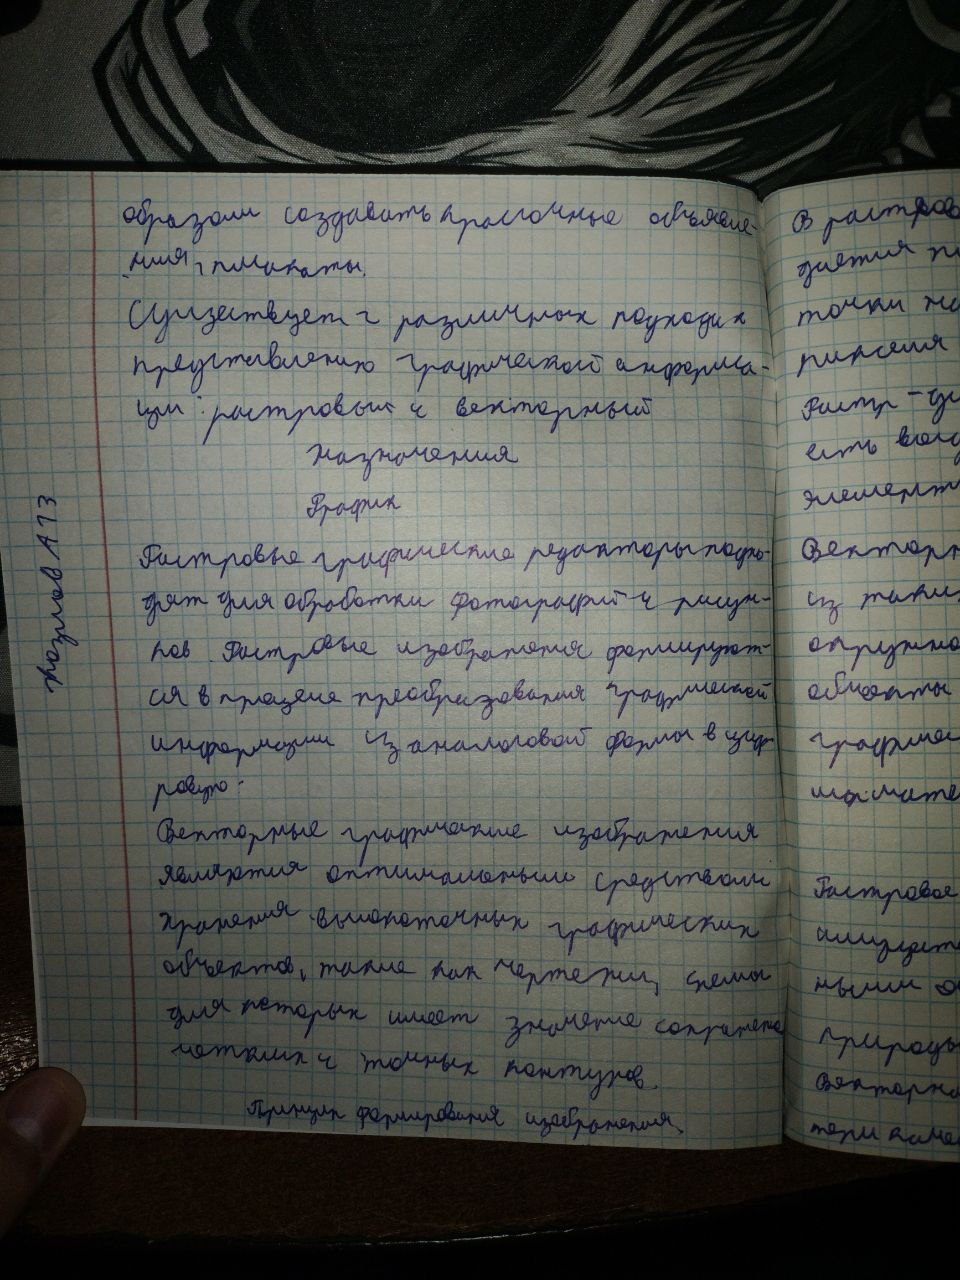 образом создавать красочные объявле-
ния, плакаты.
Существует 2 различных подхода к
представлению графической информа-
ции: растровый и векторный
Назначения
График
Растровые графические редакторы подхо-
дят для обработки фотографий и рисун-
ков. Растровые изображения формируют-
ся в процессе преобразования графической
информации из аналоговой формы в циф-
ровую.
Векторные графические изображения
являются оптимальным средством
хранения высокоточных графических
объектов, такие как чертежи, схемы
для которых имеет значение сохранение
четких и точных контуров.
Принцип формирования изображения.
Козлов А 13
В растров
даётся
точки
пикселя
Растр -
есть
элемент
Векторн
из таких
окружно
объекты
графичес
математ
Растровое
ными
природы
Векторн